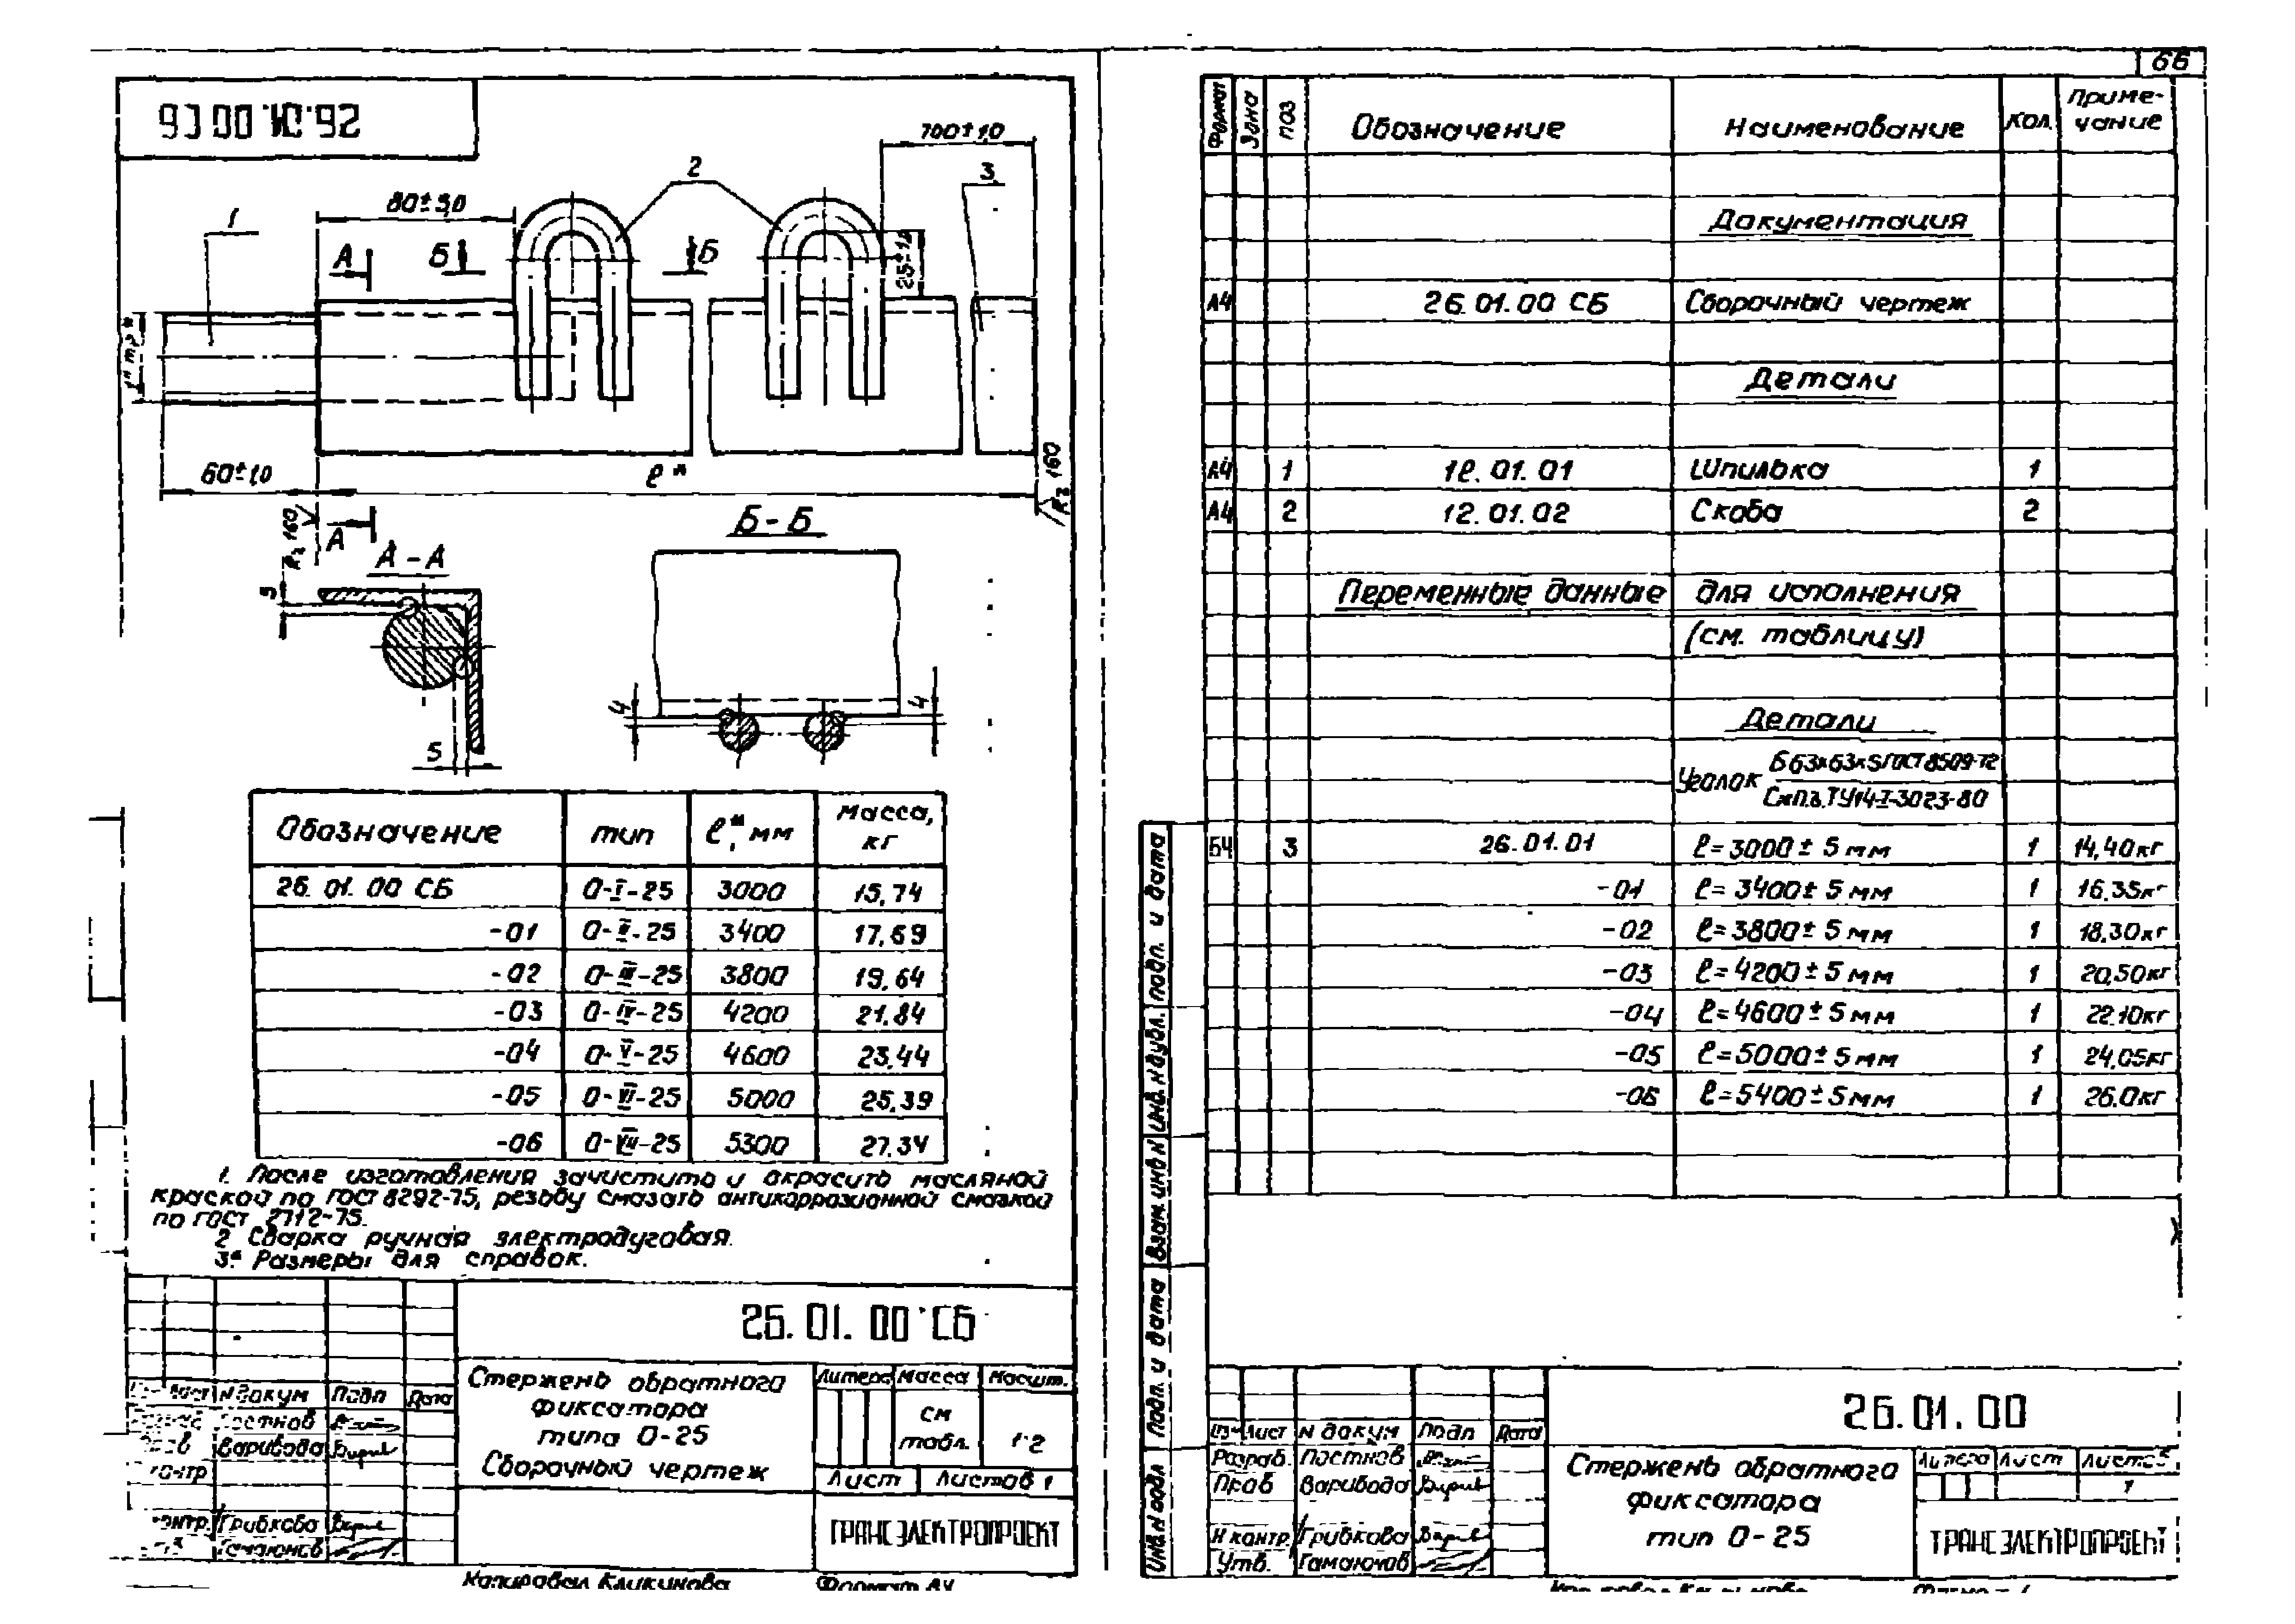 26.01.00 СБ
700±1,0
80±3,0
1
2
3
А
Б
Б
25±1,0
60±1,0
ℓ*
Rz 160
Rz 160
А
Б-Б
А-А
5
5
4
4
Обозначение тип ℓ*, мм Масса, кг
26.01.00 СБ О-I-25 3000 15,74
-01 О-II-25 3400 17,69
-02 О-III-25 3800 19,64
-03 О-IV-25 4200 21,84
-04 О-V-25 4600 23,44
-05 О-VI-25 5000 25,39
-06 О-VII-25 5300 27,34
1. После изготовления зачистить и окрасить масляной
краской по ГОСТ 8292-75, резьбу смазать антикоррозионной смазкой
по ГОСТ 2712-75.
2 Сварка ручная электродуговая.
3* Размеры для справок.
26.01.00 СБ
Стержень обратного
фиксатора
типа О-25
Сборочный чертеж
Литера Масса Масшт.
см
табл.
1:2
Лист Листов 1
Лист N докум Подп Дата
Постнов
Варивода
Контр
Контр. Грибкова
Гамаюнов
ТРАНСЭЛЕКТРОПРОЕКТ
Копировал Кликинова Формат А4
66
Формат Зона Поз Обозначение Наименование Кол. Приме-
чание
Документация
А4 26.01.00 СБ Сборочный чертеж
Детали
А4 1 12.01.01 Шпилька 1
А4 2 12.01.02 Скоба 2
Переменные данные для исполнения
(см. таблицу)
Детали
Уголок Б63х63х5 ГОСТ 8509-72
Ст ТУ14-I-3023-80
БЧ 3 26.01.01 ℓ=3000±5мм 1 14,40кг
-01 ℓ=3400±5мм 1 16,35кг
-02 ℓ=3800±5мм 1 18,30кг
-03 ℓ=4200±5мм 1 20,50кг
-04 ℓ=4600±5мм 1 22,10кг
-05 ℓ=5000±5мм 1 24,05кг
-06 ℓ=5400±5мм 1 26,0кг
Подп. и дата
Инв. N дубл.
Взам. инв N
Подп. и дата
Инв N подл
26.01.00
Изм Лист N докум Подп Дата
Разраб. Постнов
Пров Варивода
Н контр. Грибкова
Утв. Гамаюнов
Стержень обратного
фиксатора
тип О-25
Литера Лист Листов
1
ТРАНСЭЛЕКТРОПРОЕКТ